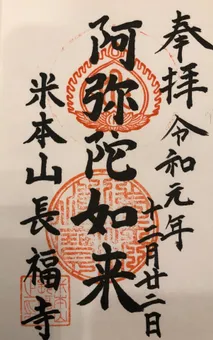 奉拝 令和元年
十二月廿二日
阿弥陀如来
米本山長福寺